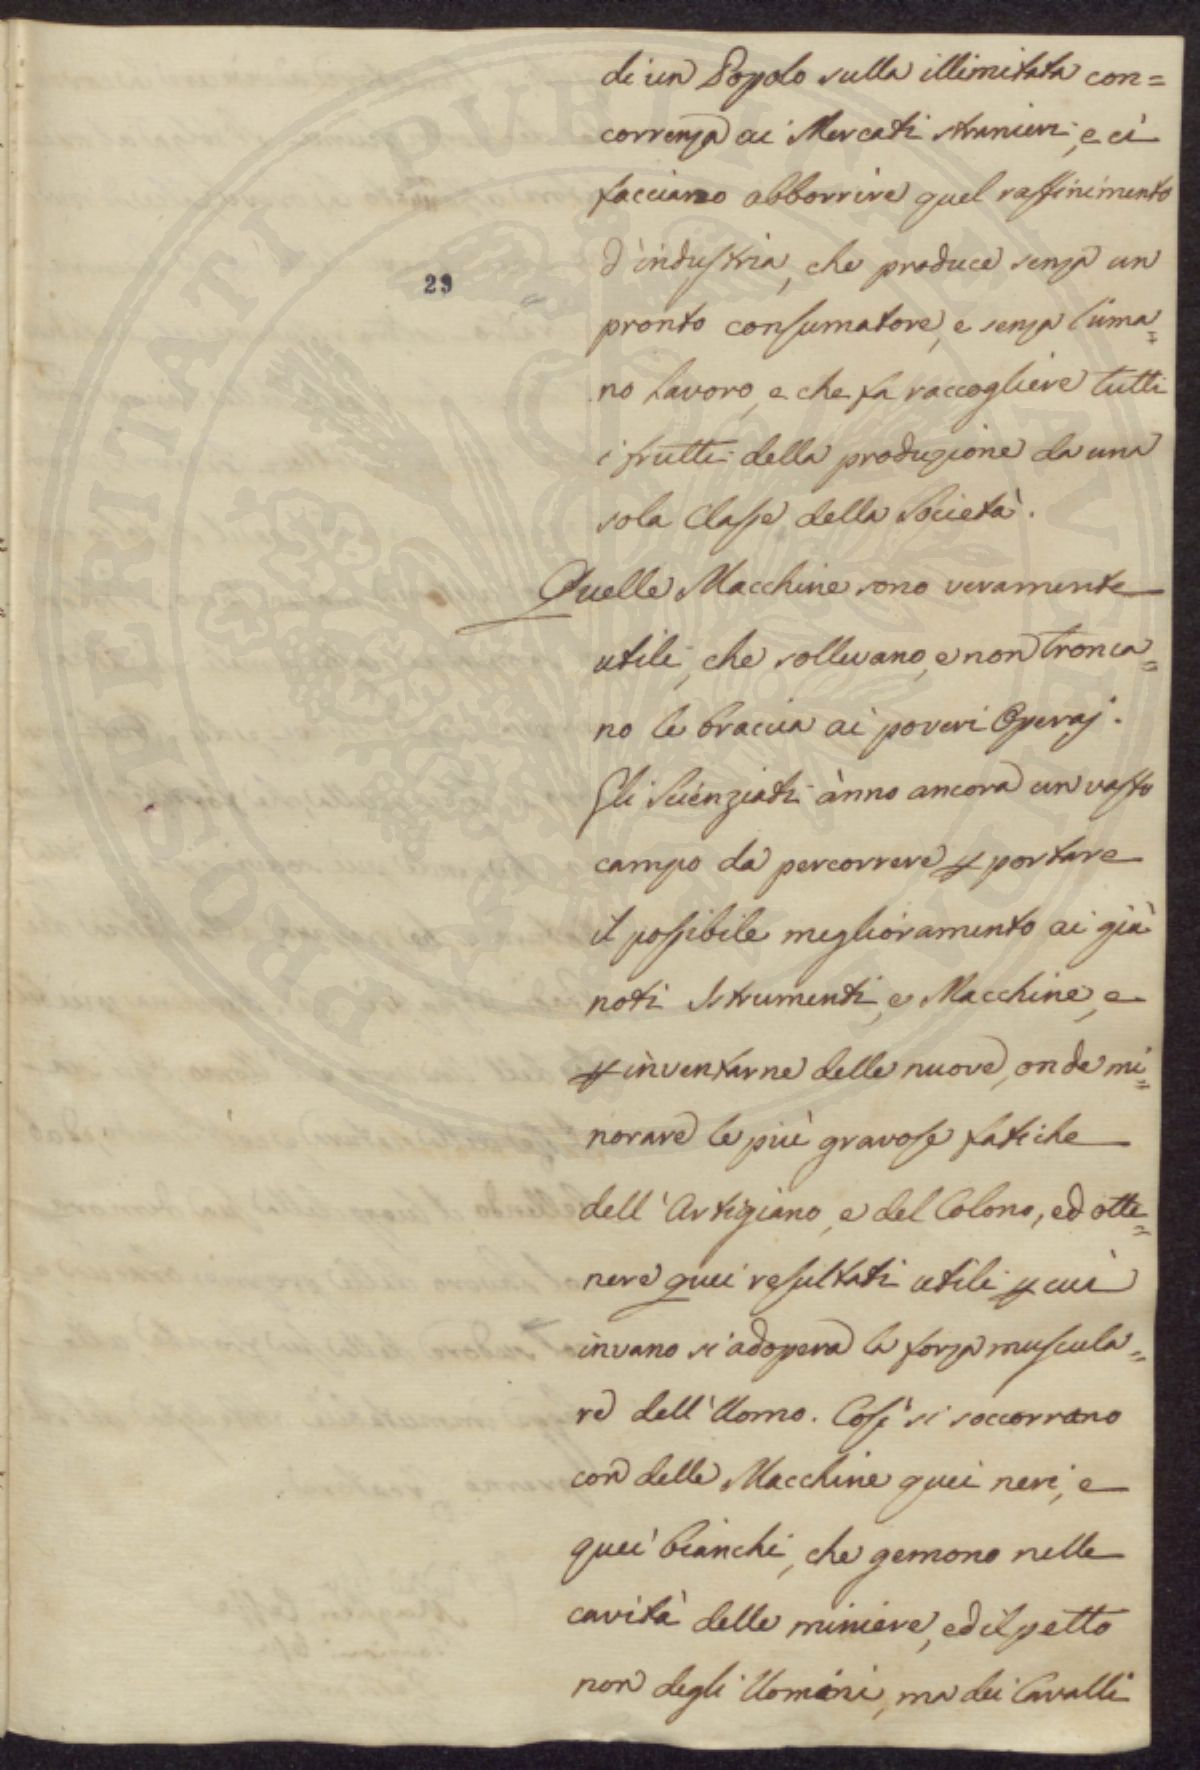 di un Popolo sulla illimitata con=
correnza ai Mercati stranieri, e ci
facciano abborrire quel raffinimento
d'industria, che produce senza un
23
pronto consumatore, e senza l'uma=
no lavoro, e che fa raccogliere tutti
i frutti della produzione da una
sola Classe della Società.
Quelle Macchine sono veramente
utili, che sollevano, e non tronca=
no le braccia ai poveri Operaj.
Gli Scienziati ànno ancora un vasto
campo da percorrere p portare
il possibile miglioramento ai già
noti Strumenti, e Macchine, e
p inventarne delle nuove, onde mi=
norare le più gravose fatiche
dell'Artigiano, e del Colono, ed otte=
nere quei resultati utili p cui
invano si adopera la forza muscula=
re dell'Uomo. Così si soccorrano
con delle Macchine quei neri, e
quei bianchi, che gemono nelle
cavità delle miniere, ed il petto
non degli Uomini, ma dei Cavalli
PROSPERITATI PUBLICAE AUGENDAE